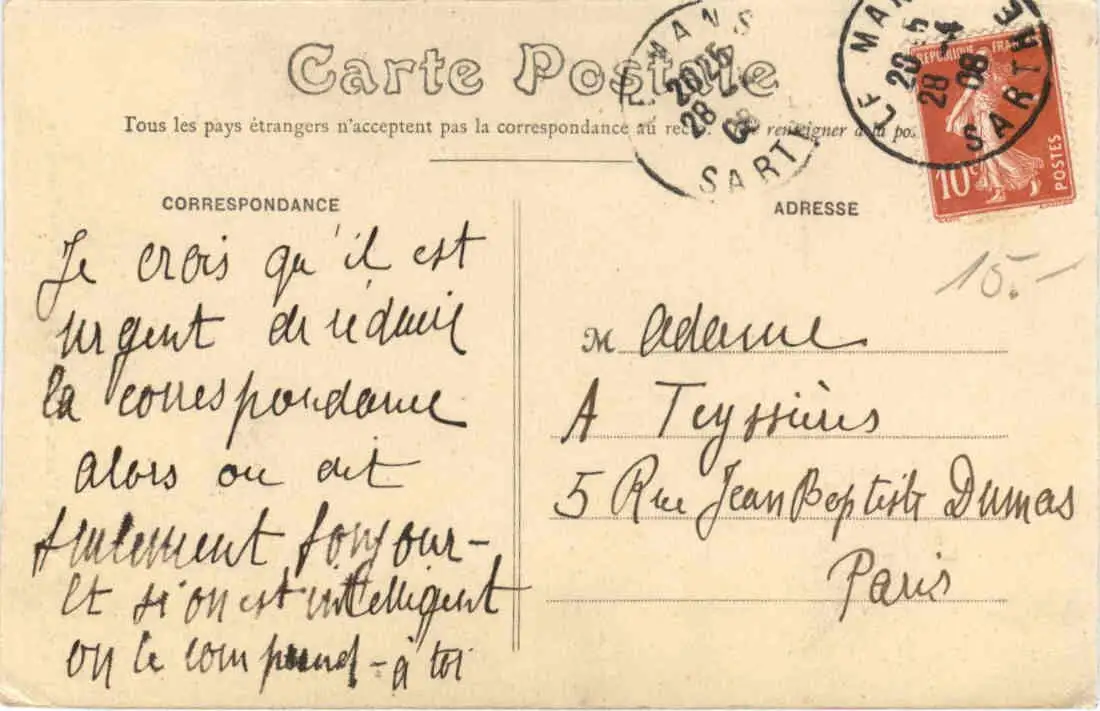 Carte Postale
Tous les pays étrangers n'acceptent pas la correspondance au recto. renseigner à la po
LE MANS
20 25
28
08
SARTHE
LE MAN
20 5
28 -4
08
SARTHE
REPUBLIQUE FRAN
10c
POSTES
CORRESPONDANCE
Je crois qu'il est
urgent de réduire
la correspondance
alors on dit
seulement bonjour-
et si on est intelligent
on le comprend - à toi
ADRESSE
15.-
Madame
A Teyssières
5 Rue Jean Baptiste Dumas
Paris